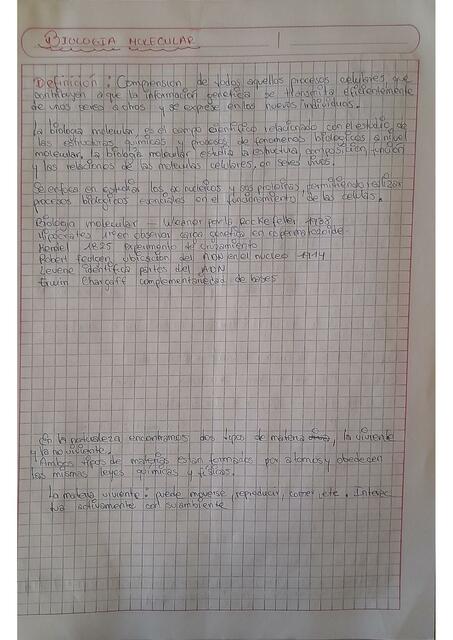 BIOLOGIA MOLECULAR
Definición: Comprensión de todos aquellos procesos celulares, que
contribuyen a que la información genética se transmita eficientemente
de unos seres a otros y se exprese en los nuevos individuos.
La biologia molecular es el campo científico relacionado con el estudio de
las estructuras quimicas y procesos de fenomenos biologicos a nivel
molecular, la biologia molecular estudia la estructura composición, función
y las relaciones de las moleculas celulares, en seres vivos.
Se enfoca en estudiar los ac nucleicos y sus proteinas, realizar
procesos biologicos esenciales en el funcionamiento de las celulas.
Biologia molecular — por la Rockefeller 1938
observar carga genetica en espermatozoide
1825 Experimento del cruzamiento
Robert ubicación del ADN en el nucleo 1914
Levene identifica partes del ADN
Erwin Chargaff complementariedad de bases
En la naturaleza encontramos dos tipos de materia, la viviente
y la no viviente.
Ambos tipos de materias estan formados por atomos y obedecen
las mismas leyes quimicas y fisicas.
La materia viviente: puede moverse, reproducir, comer, etc. Interac
tua activamente con su ambiente